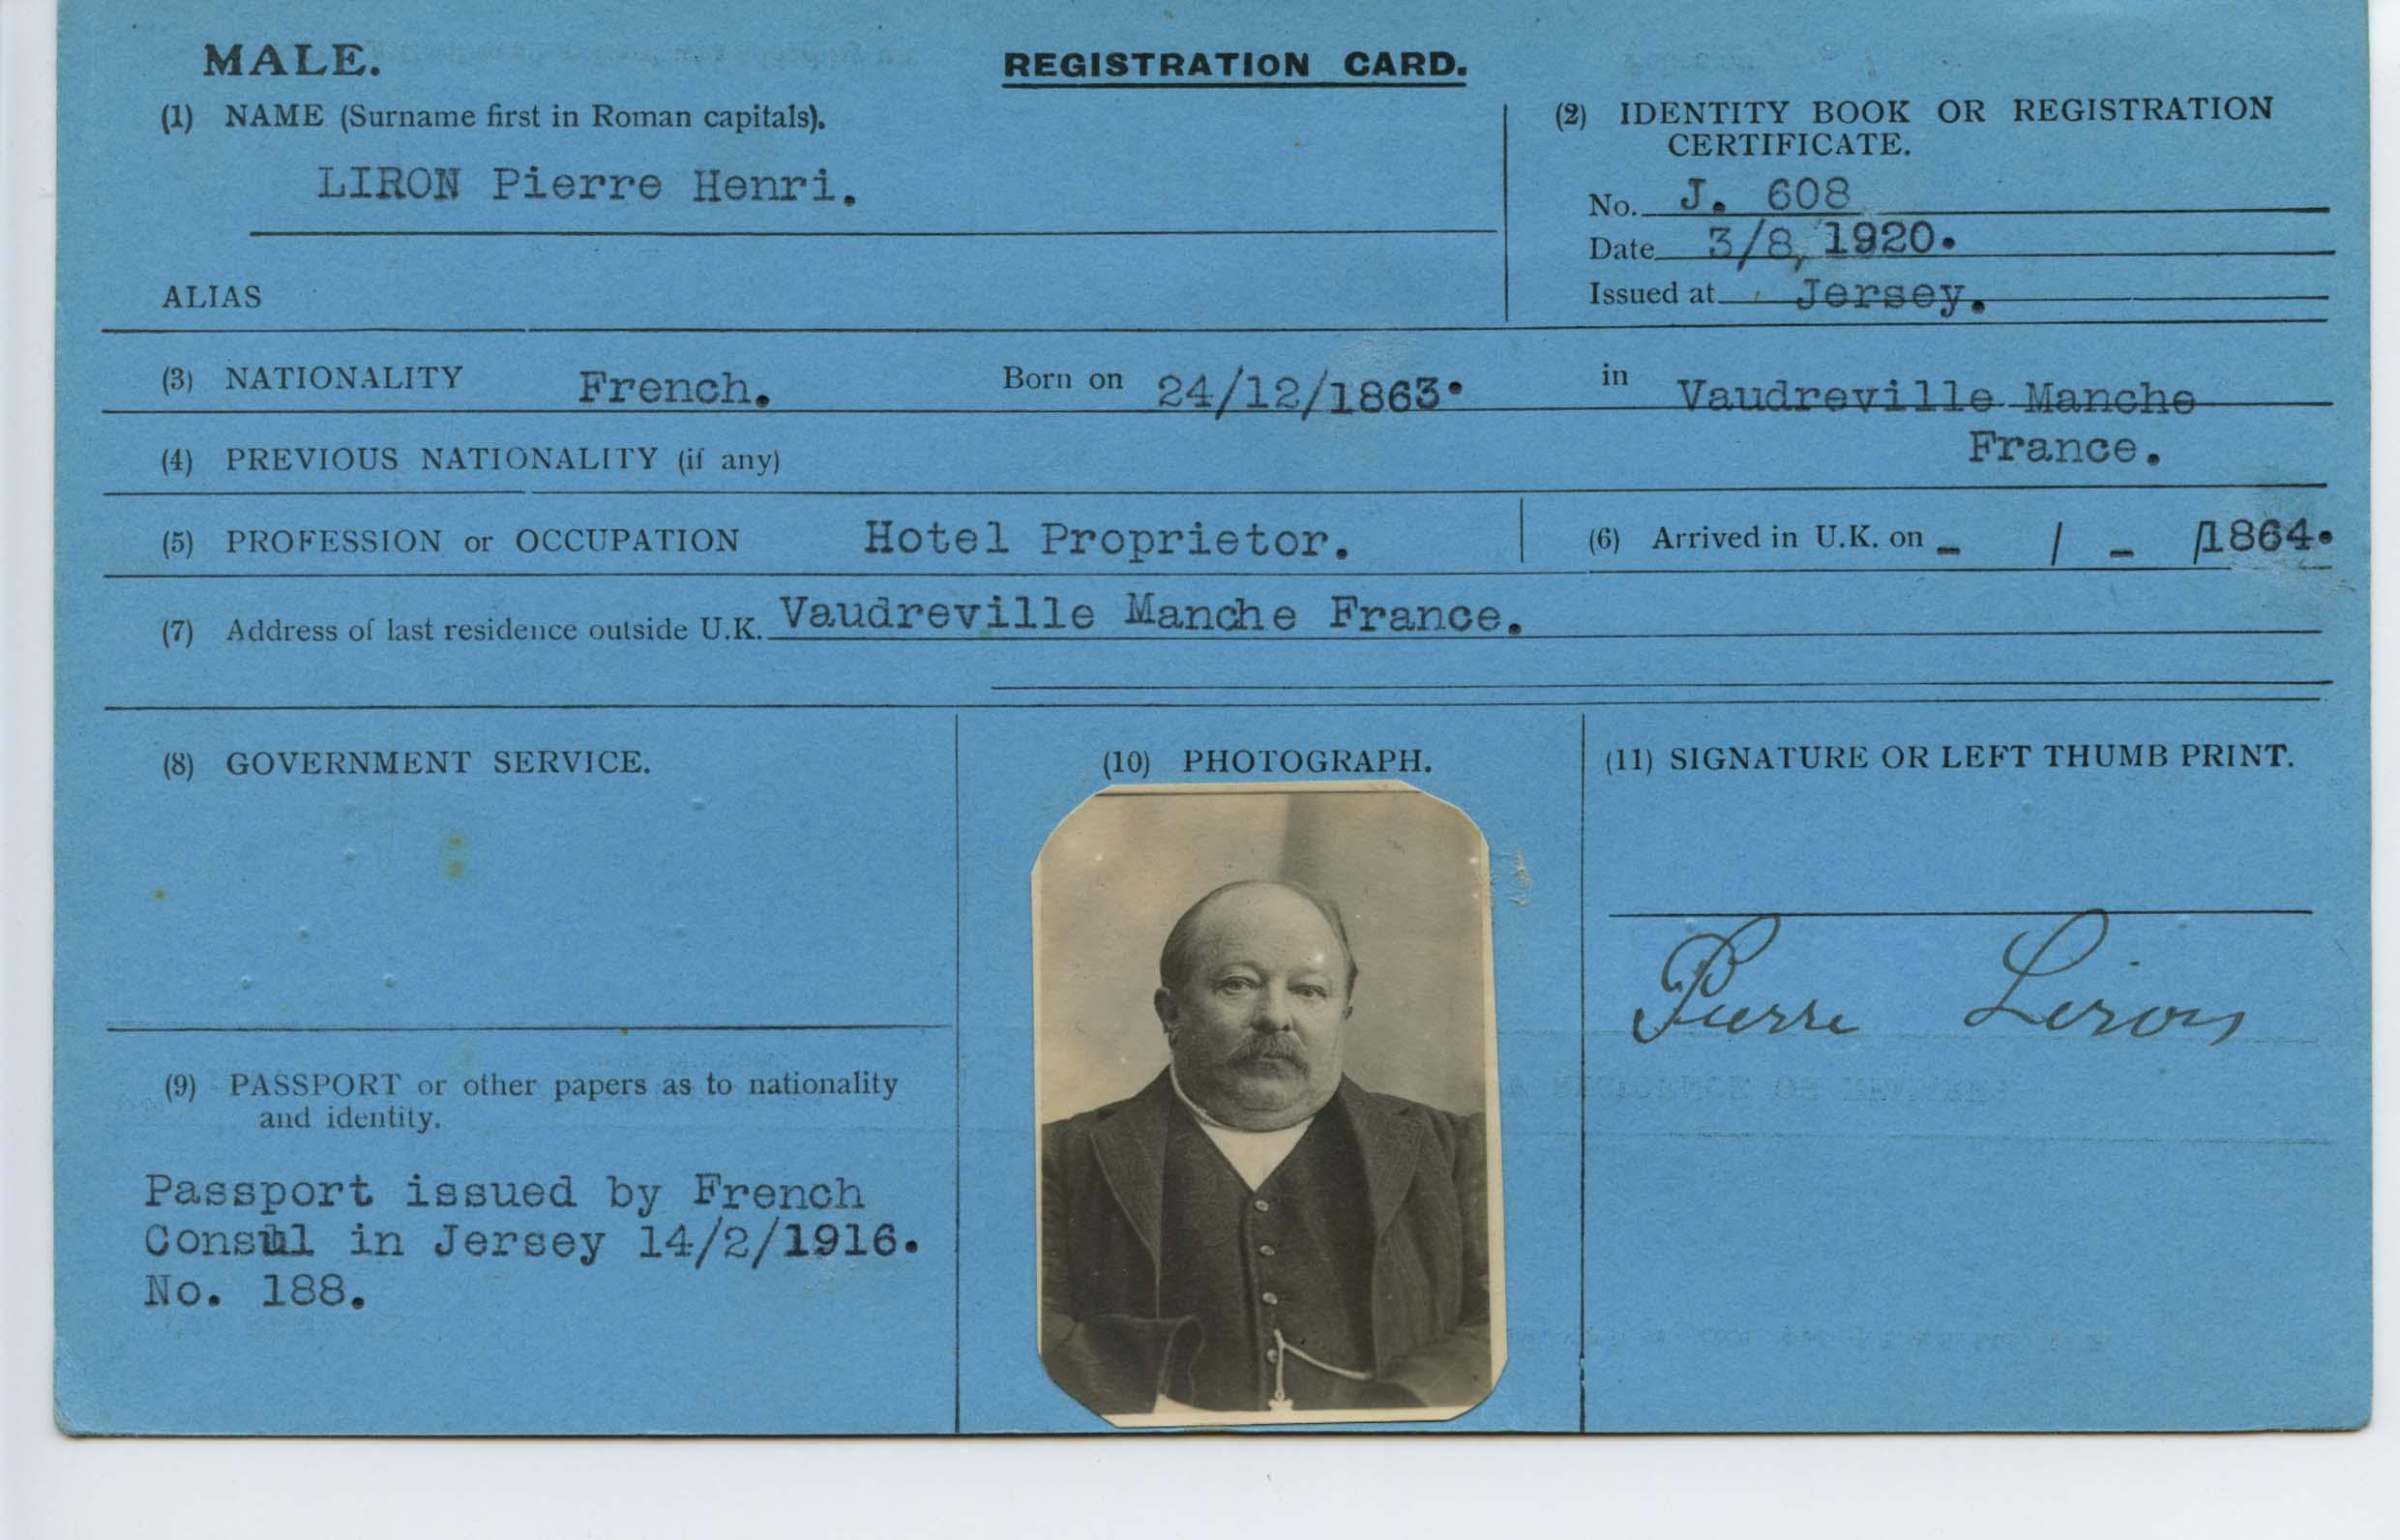 MALE.
REGISTRATION CARD.
(1) NAME (Surname first in Roman capitals).
LIRON Pierre Henri.
ALIAS
(2) IDENTITY BOOK OR REGISTRATION
CERTIFICATE.
No. J. 608
Date 3/8, 1920.
Issued at Jersey.
(3) NATIONALITY French. Born on 24/12/1863. in Vaudreville Manche
France.
(4) PREVIOUS NATIONALITY (if any)
(5) PROFESSION or OCCUPATION Hotel Proprietor.
(6) Arrived in U.K. on - / - /1864.
(7) Address of last residence outside U.K. Vaudreville Manche France.
(8) GOVERNMENT SERVICE.
(9) PASSPORT or other papers as to nationality
and identity.
Passport issued by French
Consul in Jersey 14/2/1916.
No. 188.
(10) PHOTOGRAPH.
(11) SIGNATURE OR LEFT THUMB PRINT.
Pierre Liron